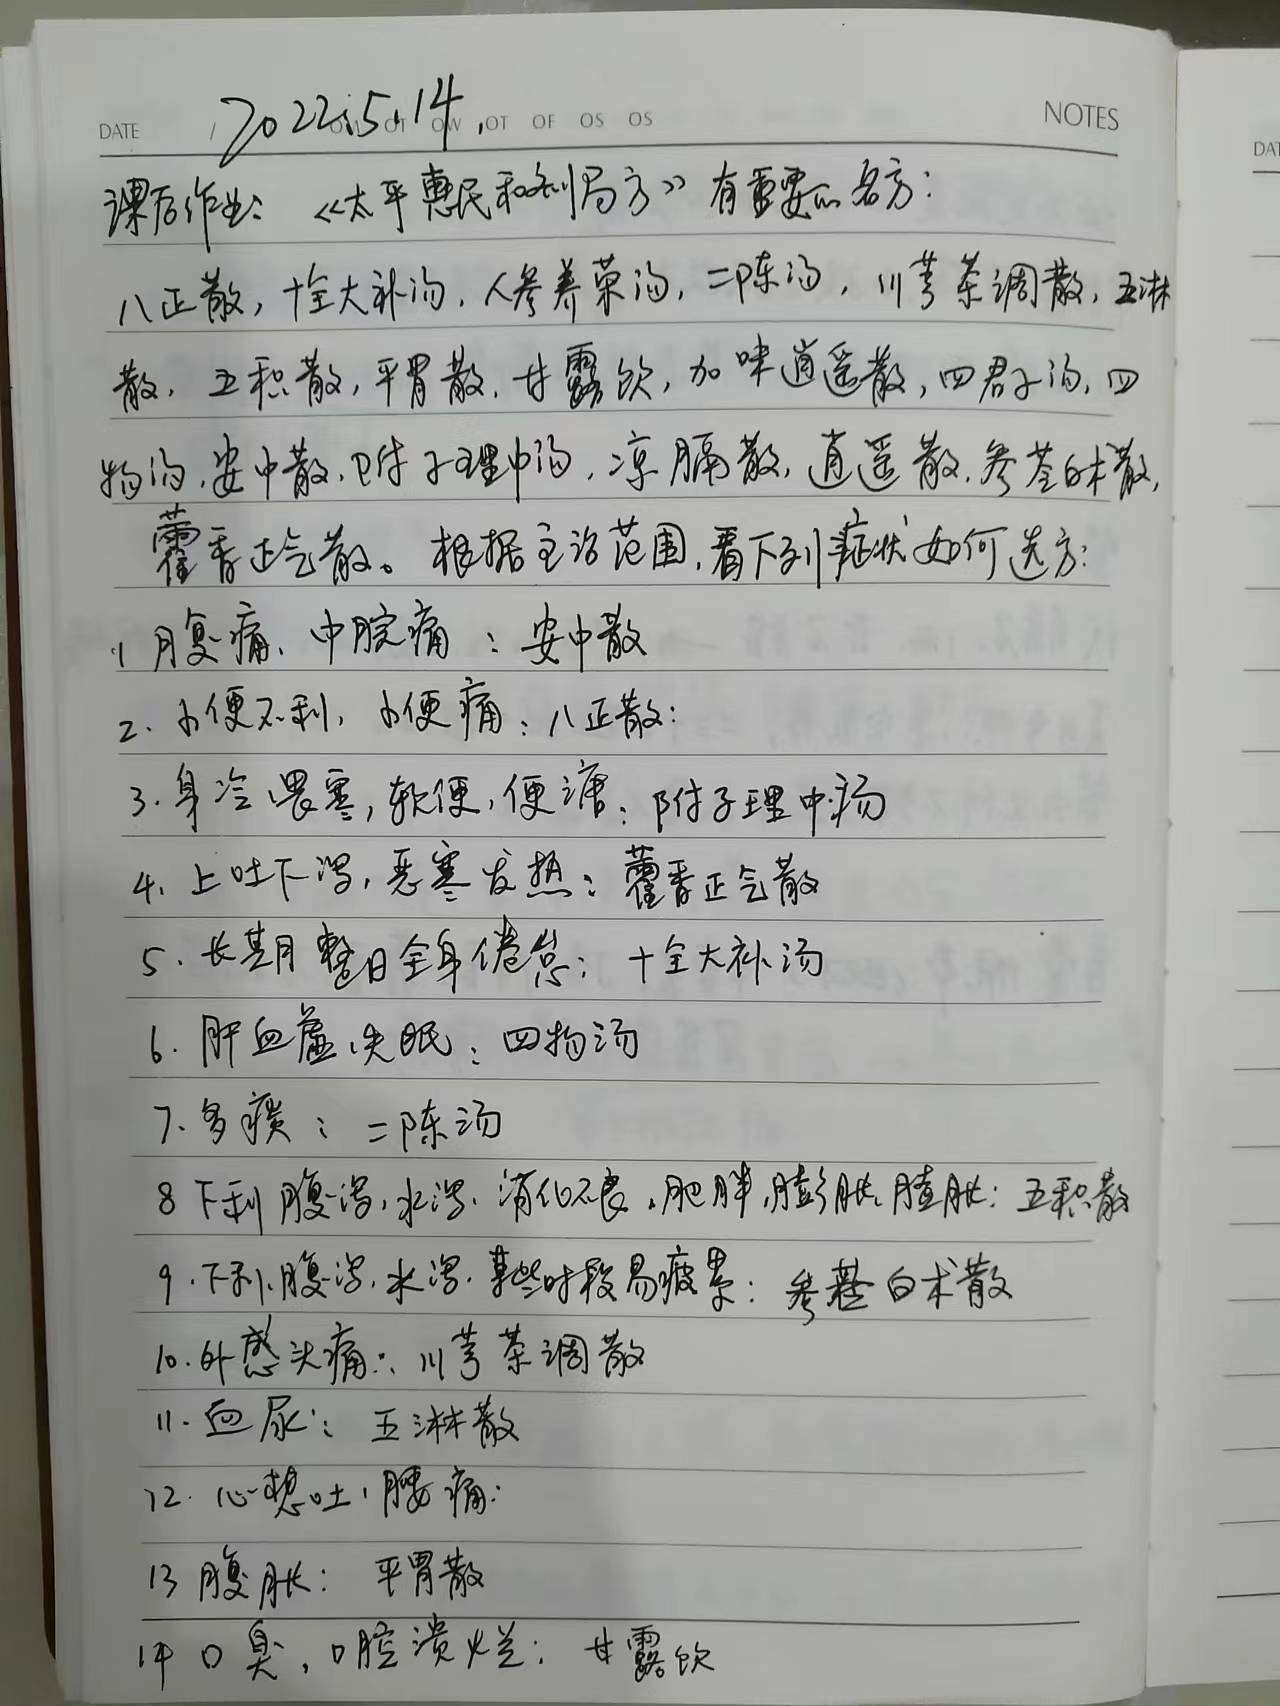 DATE 2022.5.14. OT OW OT OF OS OS NOTES
课后作业：《太平惠民和剂局方》有重要的名方：
八正散，十全大补汤，人参养荣汤，二陈汤，川芎茶调散，五淋
散，五积散，平胃散，甘露饮，加味逍遥散，四君子汤，四
物汤，安中散，附子理中汤，凉膈散，逍遥散，参苓白术散，
藿香正气散。根据主治范围，看下列症状如何选方：
1 腹痛、中脘痛：安中散
2. 小便不利，小便痛：八正散：
3. 身冷畏寒，软便，便溏：附子理中汤
4. 上吐下泻，恶寒发热：藿香正气散
5. 长期整日全身倦怠：十全大补汤
6. 肝血虚，失眠：四物汤
7. 多痰：二陈汤
8 下利腹泻，水泻，消化不良，肥胖，膨胀，膹胀：五积散
9. 下利，腹泻，水泻，某些时段易疲累：参苓白术散
10. 外感头痛：川芎茶调散
11. 血尿：五淋散
12. 心想吐，腰痛：
13 腹胀：平胃散
14 口臭，口腔溃烂：甘露饮
DAT